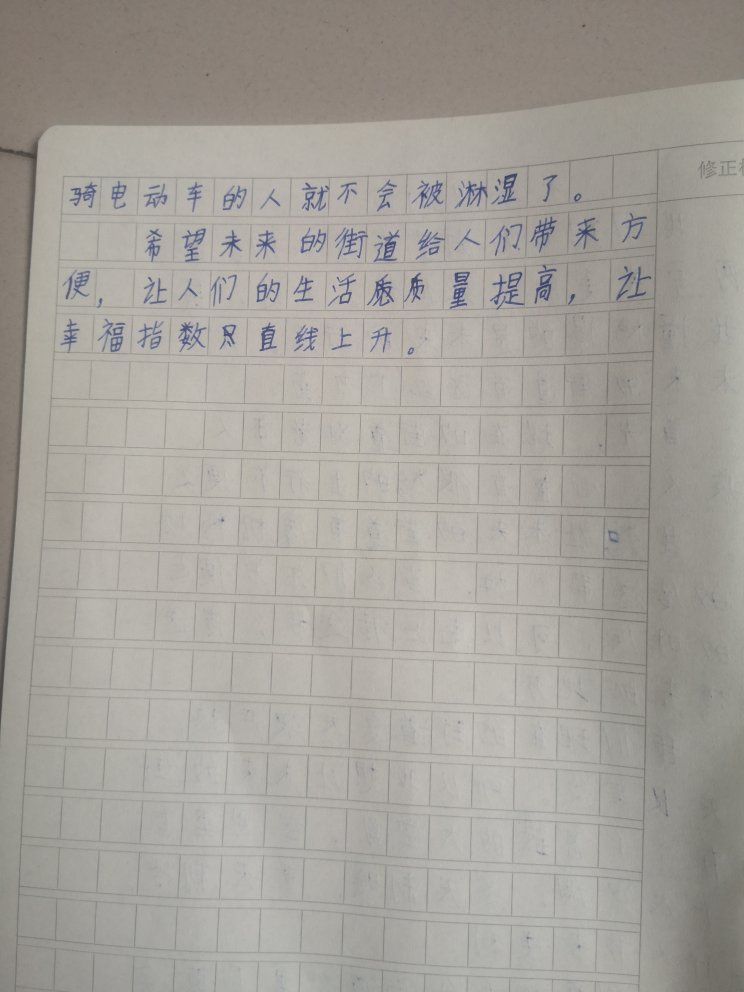 修正
骑电动车的人就不会被淋湿了。
希望未来的街道给人们带来方
便，让人们的生活质量提高，让
幸福指数直线上升。